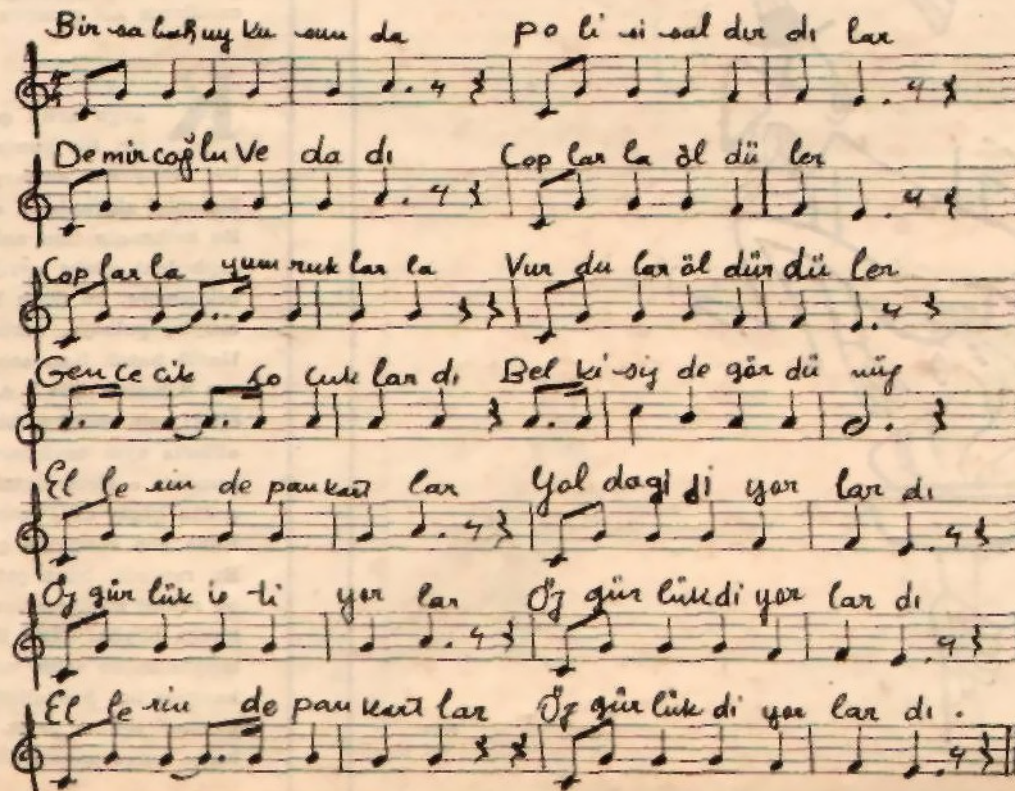 Bir sa bah uy ku sun da po li si sal dır dı lar
Demircoğlu Ve da dı Cop lar la öl dü ler
Cop lar la yum ruk lar la Vur du lar öl dür dü ler
Gen ce cik ço cuk lar dı Bel ki siz de gör dü nüz
El le rin de pan kart lar Yol da gi di yor lar dı
Öz gür lük is ti yor lar Öz gür lük di yor lar dı
El le rin de pan kart lar Öz gür lük di yor lar dı.